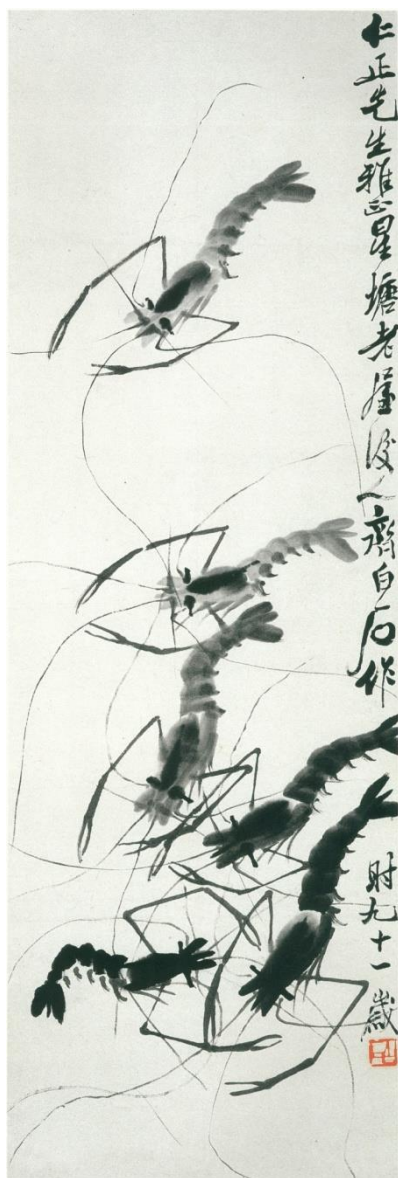 仁正先生雅正星塘老屋后人齊白石作
時九十一歲